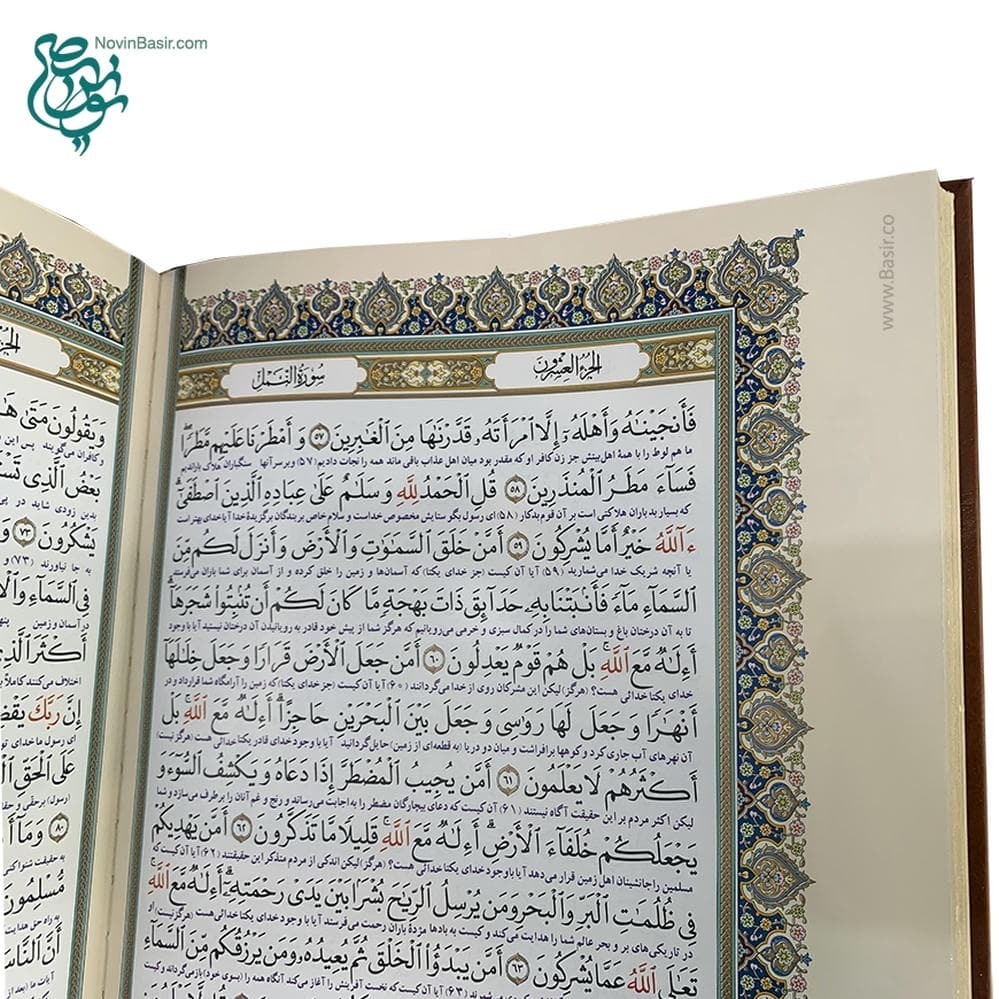 NovinBasir.com
www.Basir.co
الجزء العشرون
سورة النمل
فَأَنجَيْنَٰهُ وَأَهْلَهُۥٓ إِلَّا ٱمْرَأَتَهُۥ قَدَّرْنَٰهَا مِنَ ٱلْغَٰبِرِينَ ﴿٥٧﴾ وَأَمْطَرْنَا عَلَيْهِم مَّطَرًا ۖ
ما هم لوط را با همهٔ اهل بیتش جز زن کافر او که مقدر بود میان اهل عذاب باقی ماند همه را نجات دادیم (۵۷) و بر سر آنها سنگباران هلاک باراندیم
فَسَآءَ مَطَرُ ٱلْمُنذَرِينَ ﴿٥٨﴾ قُلِ ٱلْحَمْدُ لِلَّهِ وَسَلَٰمٌ عَلَىٰ عِبَادِهِ ٱلَّذِينَ ٱصْطَفَىٰٓ ۗ
که بسیار بد باران هلاکتی است بر آن قوم بدکار (۵۸) ای رسول بگو ستایش مخصوص خداست و سلام خاص بر بندگان برگزیدهٔ خدا آیا خدای بهتر است
ءَآللَّهُ خَيْرٌ أَمَّا يُشْرِكُونَ ﴿٥٩﴾ أَمَّنْ خَلَقَ ٱلسَّمَٰوَٰتِ وَٱلْأَرْضَ وَأَنزَلَ لَكُم مِّنَ
یا آنچه شریک خدا می‌شمارید (۵۹) آیا آن کیست (جز خدای یکتا) که آسمان‌ها و زمین را خلق کرده و از آسمان برای شما باران می‌فرستد
ٱلسَّمَآءِ مَآءً فَأَنۢبَتْنَا بِهِۦ حَدَآئِقَ ذَاتَ بَهْجَةٍ مَّا كَانَ لَكُمْ أَن تُنۢبِتُوا۟ شَجَرَهَآ ۗ
تا به آن درختان باغ و بستان‌های شما را در کمال سبزی و خرمی می‌رویانیم که هرگز شما از پیش خود قادر به رویانیدن آن درختان نیستید آیا با وجود
أَءِلَٰهٌ مَّعَ ٱللَّهِ ۚ بَلْ هُمْ قَوْمٌ يَعْدِلُونَ ﴿٦٠﴾ أَمَّن جَعَلَ ٱلْأَرْضَ قَرَارًا وَجَعَلَ خِلَٰلَهَآ
خدای یکتا خدائی هست؟ (هرگز) لیکن این مشرکان روی از خدا می‌گردانند (۶۰) آیا آن کیست (جز خدای یکتا) که زمین را آرامگاه شما قرار داد و در
أَنْهَٰرًا وَجَعَلَ لَهَا رَوَٰسِىَ وَجَعَلَ بَيْنَ ٱلْبَحْرَيْنِ حَاجِزًا ۗ أَءِلَٰهٌ مَّعَ ٱللَّهِ ۚ بَلْ
آن نهرهای آب جاری کرد و کوهها برافراشت و میان دو دریا (به قطعه‌ای از زمین) حایل گردانید آیا با وجود خدای قادر یکتا خدائی هست (هرگز نیست)
أَكْثَرُهُمْ لَا يَعْلَمُونَ ﴿٦١﴾ أَمَّن يُجِيبُ ٱلْمُضْطَرَّ إِذَا دَعَاهُ وَيَكْشِفُ ٱلسُّوٓءَ وَ
لیکن اکثر مردم بر این حقیقت آگاه نیستند (۶۱) آن کیست که دعای بیچارگان مضطر را به اجابت می‌رساند و رنج و غم آنان را برطرف می‌سازد و شما
يَجْعَلُكُمْ خُلَفَآءَ ٱلْأَرْضِ ۗ أَءِلَٰهٌ مَّعَ ٱللَّهِ ۚ قَلِيلًا مَّا تَذَكَّرُونَ ﴿٦٢﴾ أَمَّن يَهْدِيكُمْ
مسلمین را جانشینان اهل زمین قرار می‌دهد آیا با وجود خدای یکتا خدائی هست؟ (هرگز) لیکن اندکی از مردم متذکر این حقیقتند (۶۲) آیا آن کیست که
فِى ظُلُمَٰتِ ٱلْبَرِّ وَٱلْبَحْرِ وَمَن يُرْسِلُ ٱلرِّيَٰحَ بُشْرًۢا بَيْنَ يَدَىْ رَحْمَتِهِۦٓ ۗ أَءِلَٰهٌ مَّعَ ٱللَّهِ ۚ
در تاریکی‌های بر و بحر عالم شما را هدایت می‌کند و کیست به بادها مژدهٔ باران رحمت می‌فرستد آیا با وجود خدای یکتا خدائی هست (هرگز نیست) او
تَعَٰلَى ٱللَّهُ عَمَّا يُشْرِكُونَ ﴿٦٣﴾ أَمَّن يَبْدَؤُا۟ ٱلْخَلْقَ ثُمَّ يُعِيدُهُۥ وَمَن يَرْزُقُكُم مِّنَ ٱلسَّمَآءِ
(۶۳) آیا آن کیست که نخست آفرینش را آغاز می‌کند آنگاه همه را (بسوی خود) باز می‌گرداند و کیست
وَيَقُولُونَ مَتَىٰ
و کافران می‌گویند پس این
بَعْضُ ٱلَّذِى
بدین زودی شاید در پی
يَشْكُرُونَ ﴿٧٣﴾
به جا نیاورند (۷۳) و
فِى ٱلسَّمَآءِ
در آسمان و زمین
أَكْثَرَ ٱلَّذِى
اختلاف می‌کنند کاملاً
إِنَّ رَبَّكَ
ای رسول ما خدای تو
عَلَى ٱلْحَقِّ
(رسول) برحقی و حقا
﴿٨٠﴾ وَمَآ
به حقیقت شنوا کنی
مُّسْلِمُونَ
به راه حق هدایت
أَنَّ ٱلنَّاسَ
آیات ما (بعد از